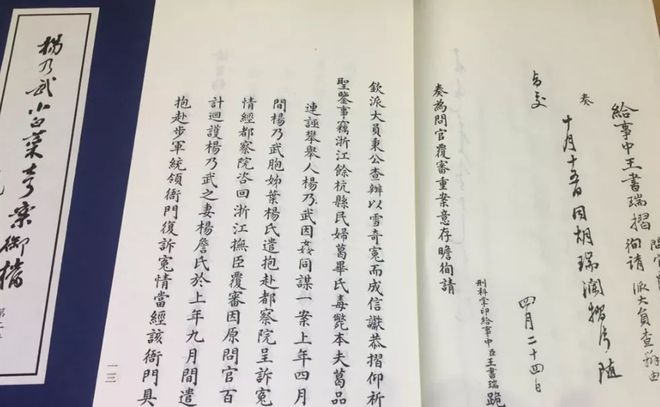 給事中王書瑞摺
徇請派大員查辦由
奏
十月十五日因胡瑞瀾摺片隨
四月二十四日
刑科掌印給事中臣王書瑞跪
奏為問官覆審重案意存瞻徇請
欽派大員秉公查辦以雪奇冤而成信讞恭摺仰祈
聖鑒事竊浙江餘杭縣民婦葛畢氏毒斃本夫葛品
連誣攀舉人楊乃武因姦同謀一案上年四月
間楊乃武胞姊葉楊氏遣抱赴都察院呈訴冤
情經都察院咨回浙江撫臣覆審因原問官百
計迴護楊乃武之妻楊詹氏於上年九月間遣
抱赴步軍統領衙門復訴冤情當經該衙門具
一三
楊乃武小白菜奇案御檔